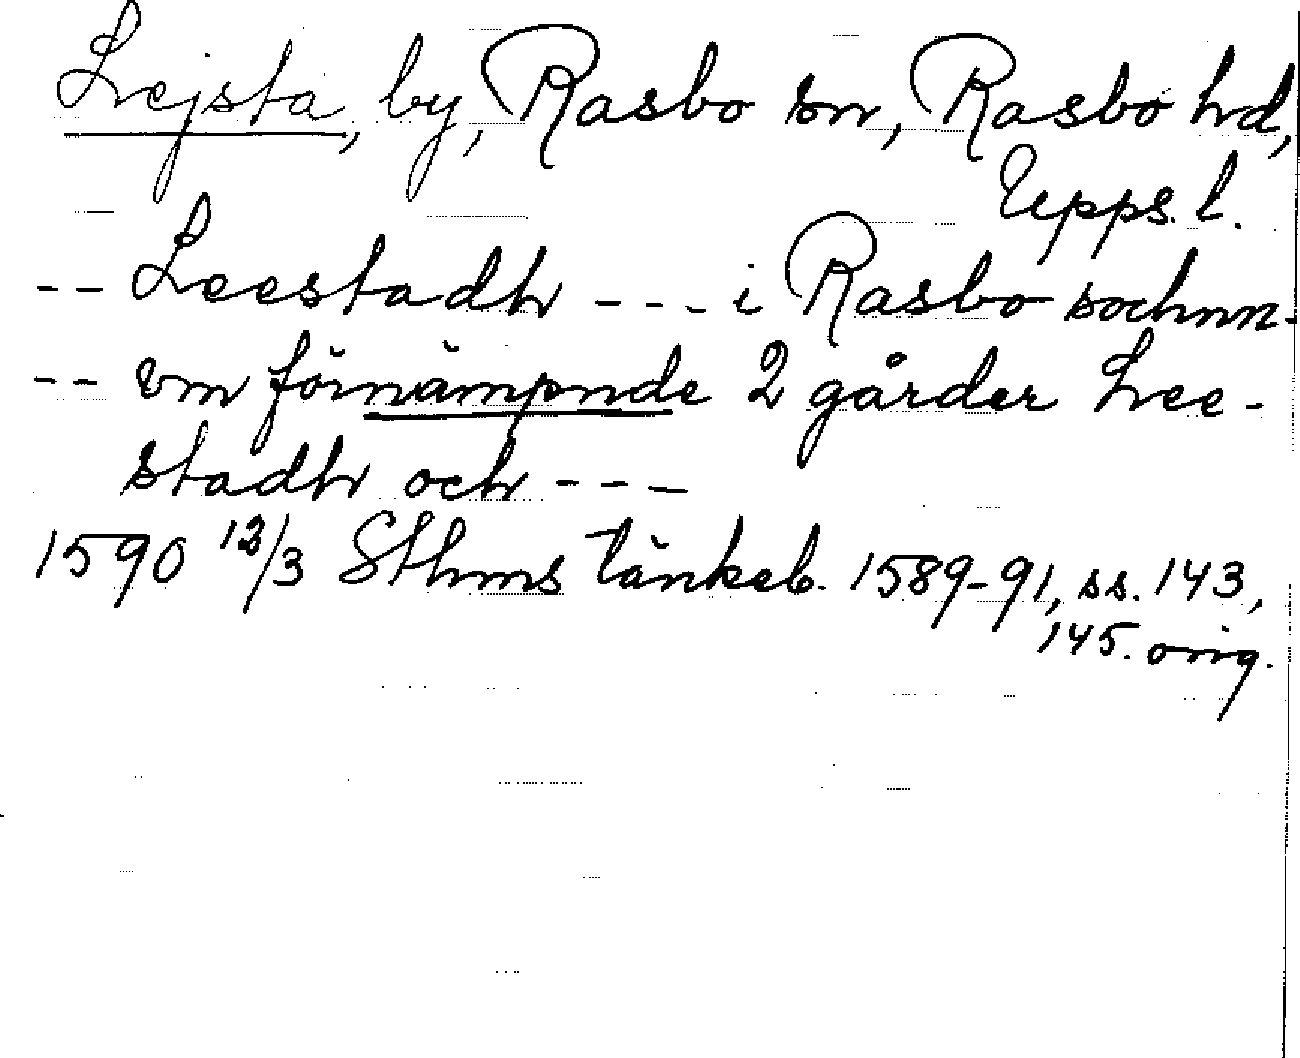 Lejsta, by, Rasbo sn, Rasbo hd,
Upps. l.
-- Leestadh --- i Rasbo sochnn-
-- vm förnämpnde 2 gårder Lee-
stadh och ---
1590 13/3 Sthms tänkeb. 1589-91, ss. 143,
145. orig.